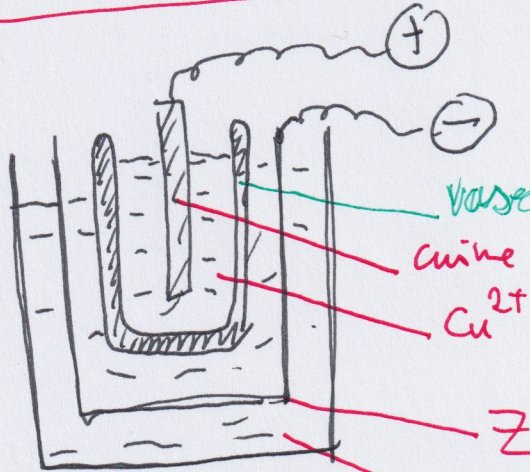 +
−
vase
cuivre
Cu²⁺
Z